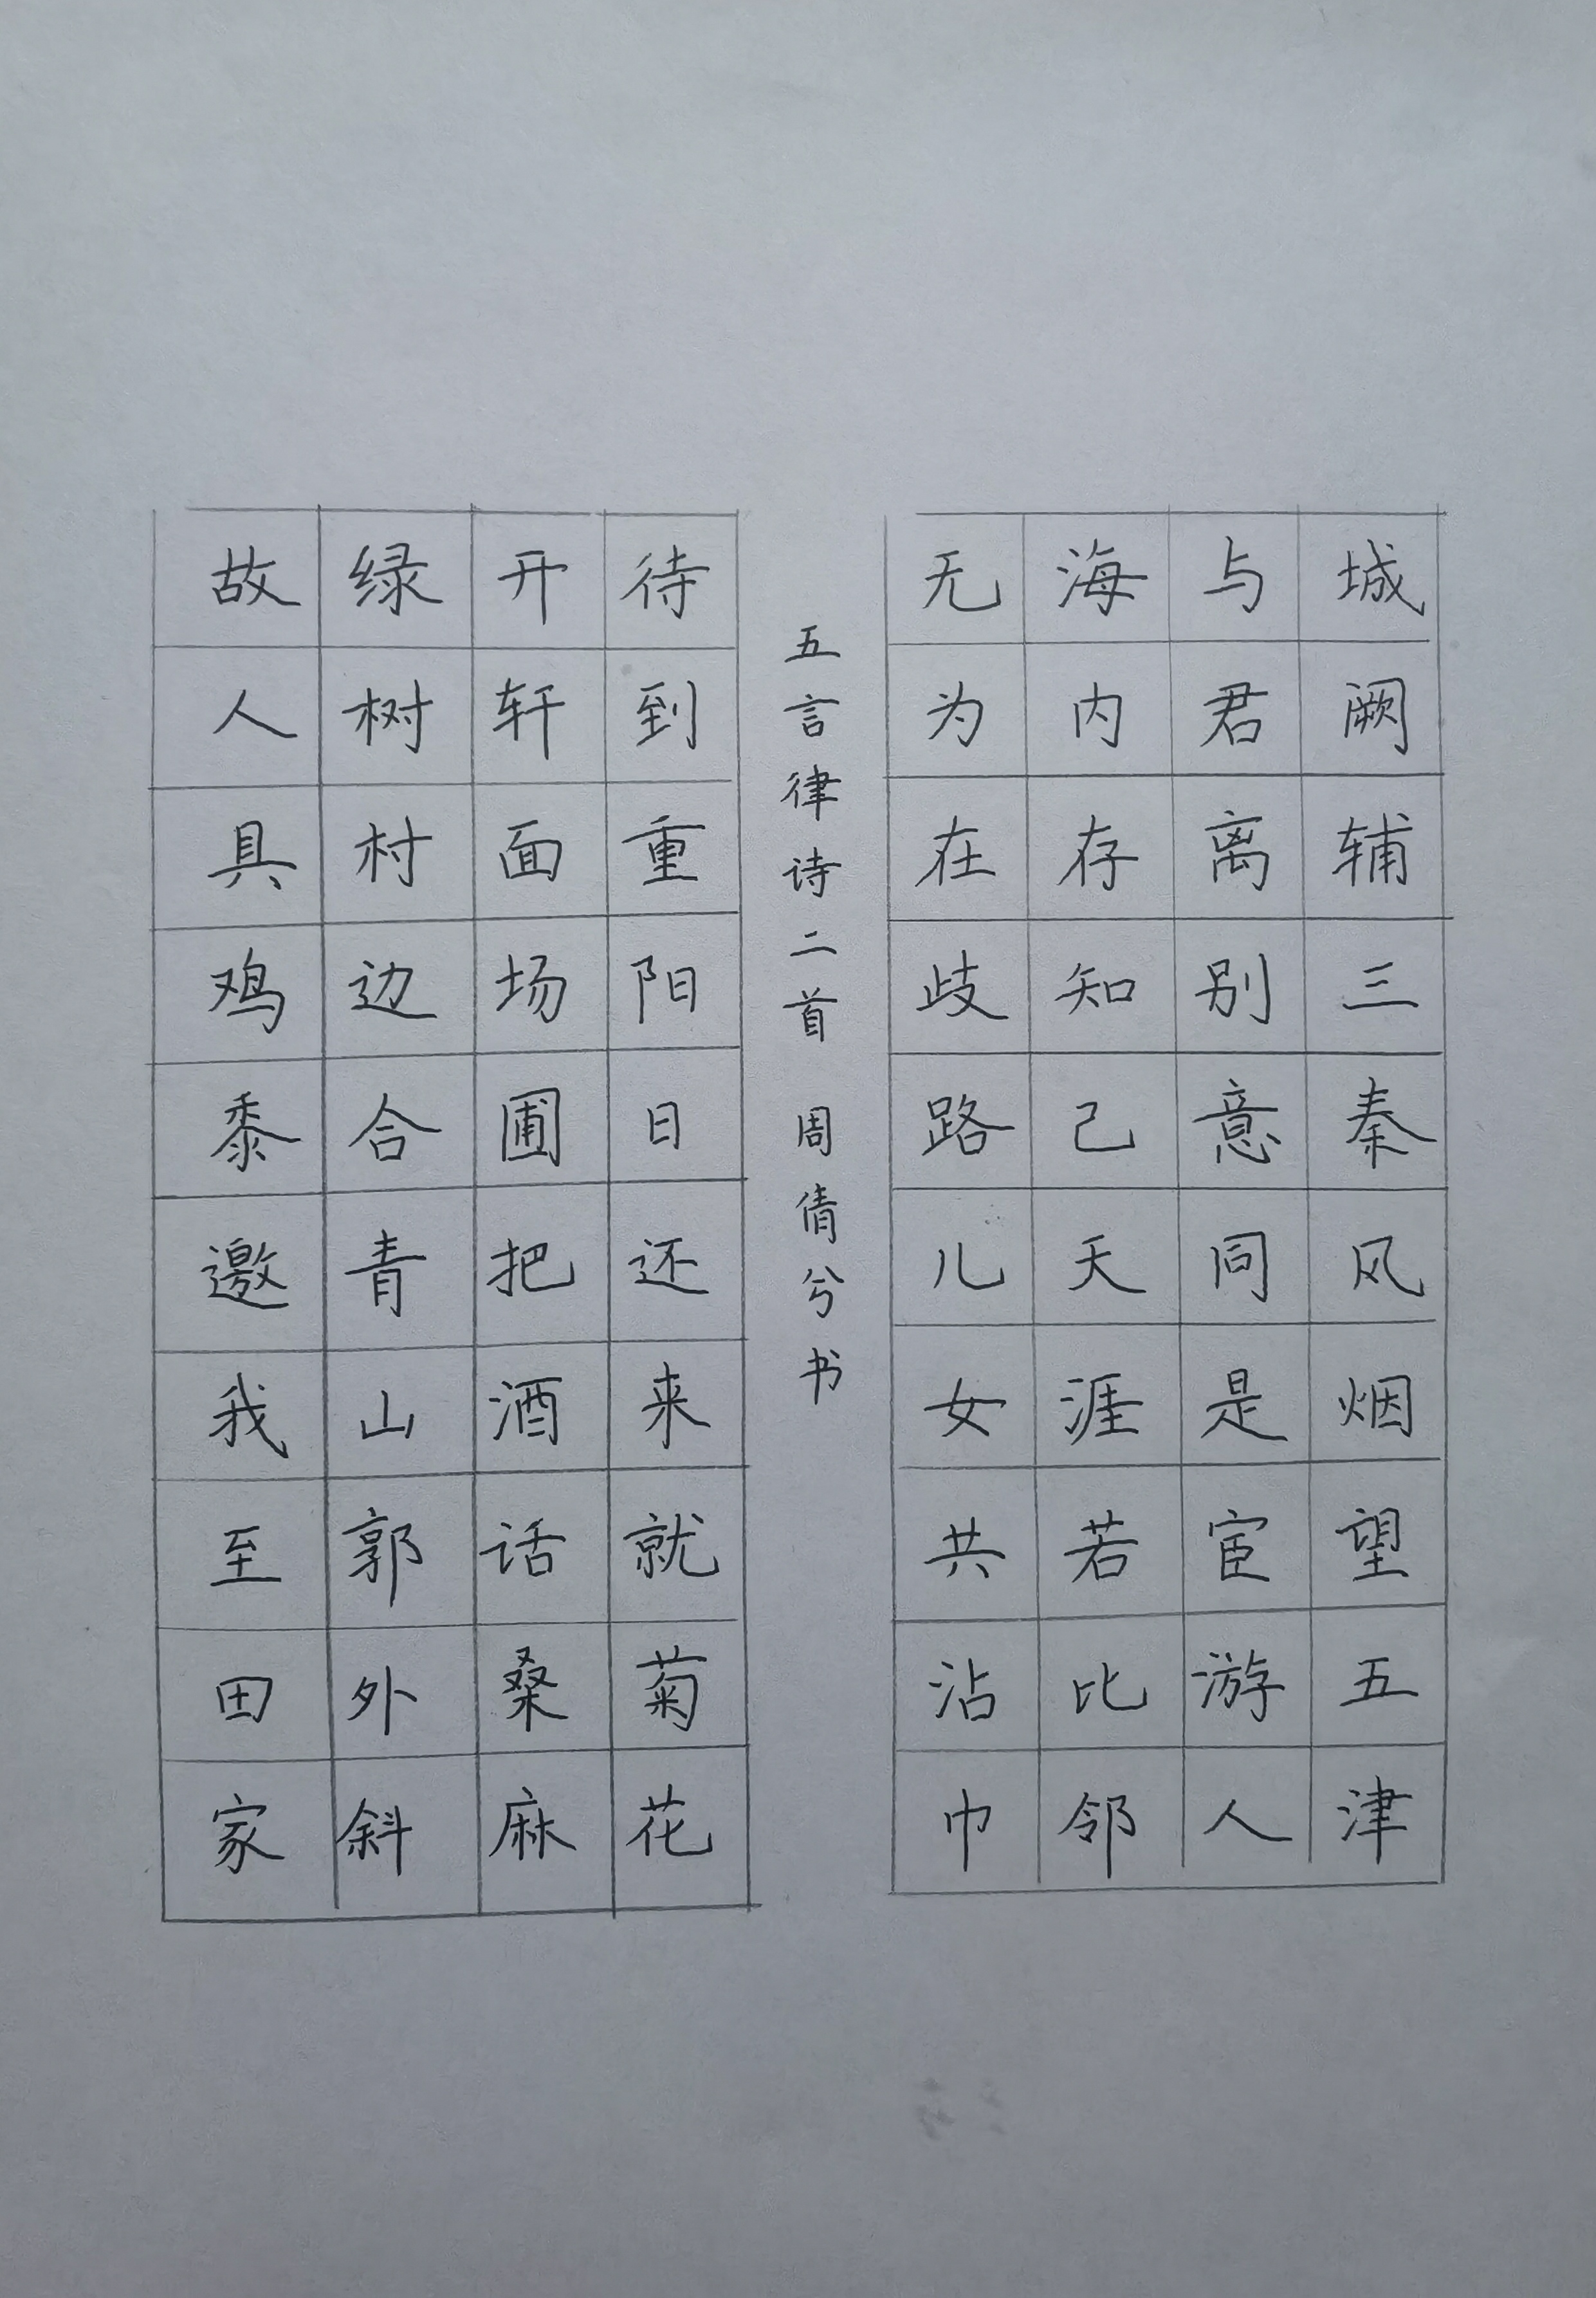 城阙辅三秦风烟望五津
与君离别意同是宦游人
海内存知己天涯若比邻
无为在歧路儿女共沾巾
五言律诗二首 周倩兮书
故人具鸡黍邀我至田家
绿树村边合青山郭外斜
开轩面场圃把酒话桑麻
待到重阳日还来就菊花